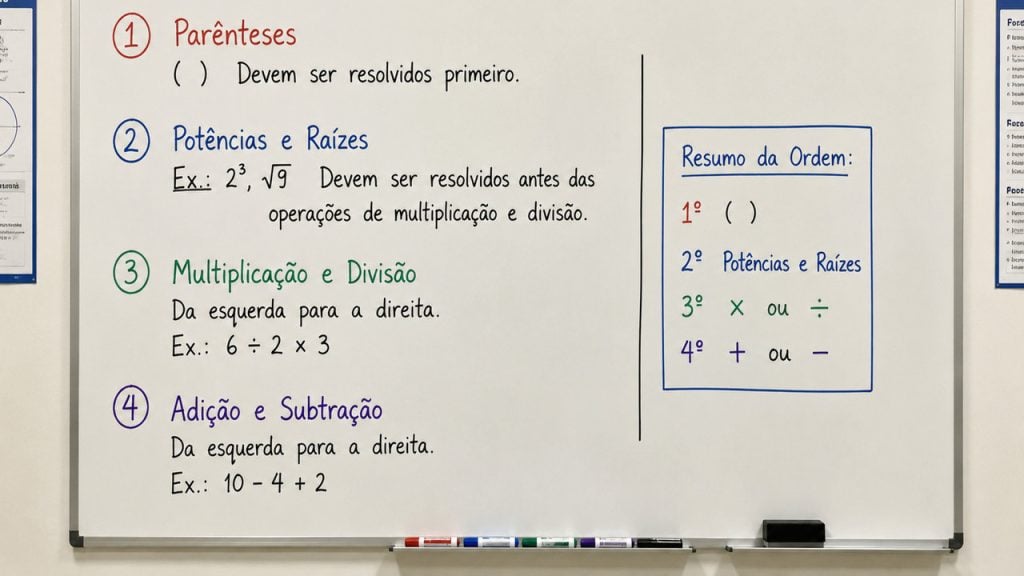 1 Parênteses
( ) Devem ser resolvidos primeiro.
2 Potências e Raízes
Ex.: 2³, √9 Devem ser resolvidos antes das
operações de multiplicação e divisão.
3 Multiplicação e Divisão
Da esquerda para a direita.
Ex.: 6 ÷ 2 × 3
4 Adição e Subtração
Da esquerda para a direita.
Ex.: 10 − 4 + 2
Resumo da Ordem:
1º ( )
2º Potências e Raízes
3º × ou ÷
4º + ou −